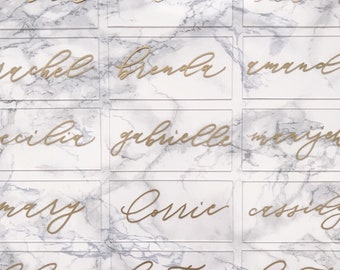 rachel brenda amand
cecilia gabrielle
mary Corrie cassidy